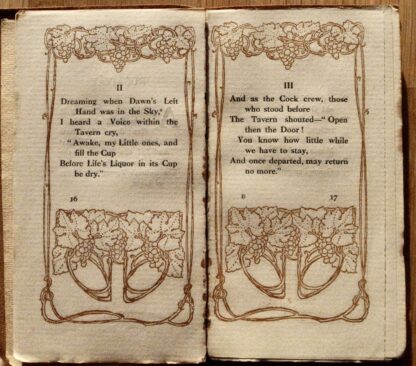 II
Dreaming when Dawn's Left
Hand was in the Sky,
I heard a Voice within the
Tavern cry,
"Awake, my Little ones, and
fill the Cup
Before Life's Liquor in its Cup
be dry."
16
III
And as the Cock crew, those
who stood before
The Tavern shouted—"Open
then the Door!
You know how little while
we have to stay,
And once departed, may return
no more."
B
17